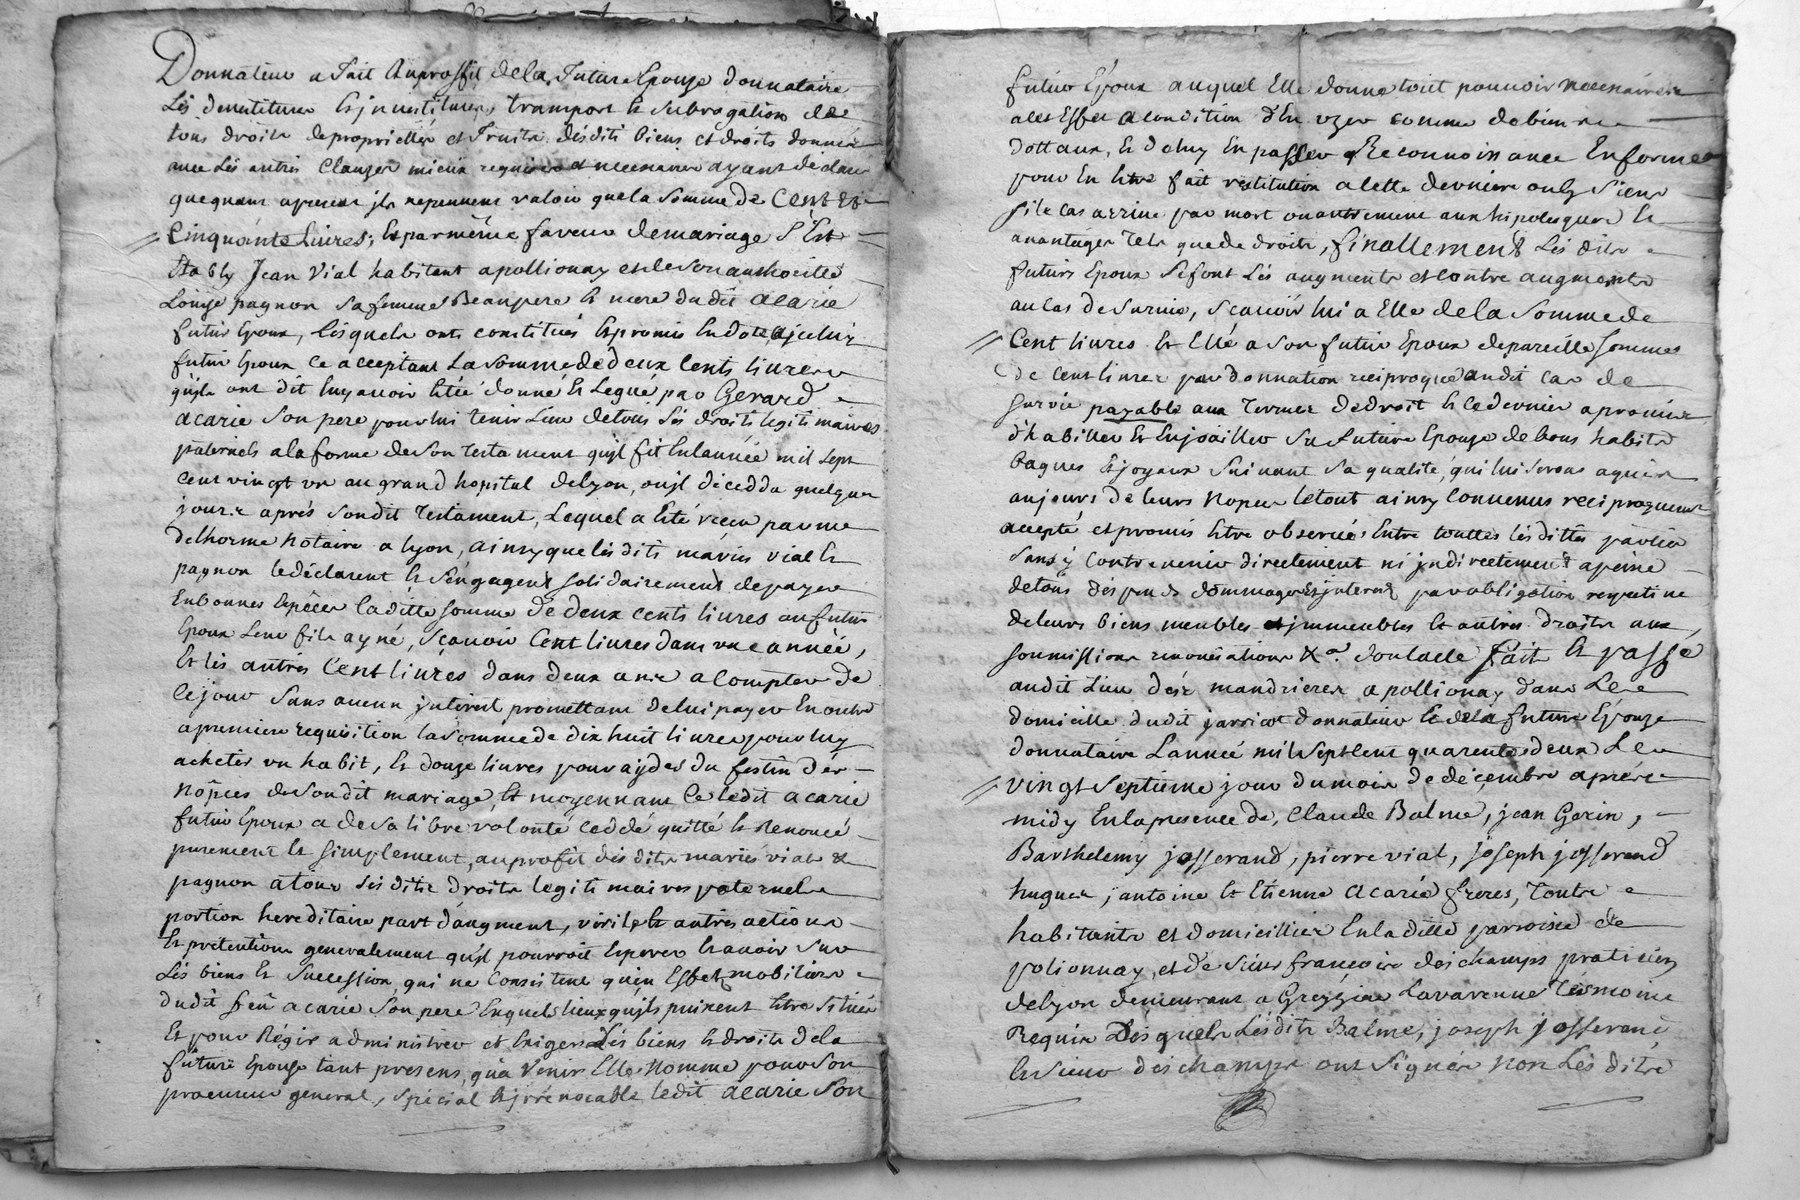 Donnateur a fait auproffit dela future Epouse donnataire
Les devestitures Et jnvestitures, transport Et subrogation de
tous droits de proprietés et fruits desdits biens et droits donnés
avec Les autres Clauses mieux requises et necessaires ayant declaré
que quant apresent jls nepeuvent valoir que la somme de Cent Et
Cinquante Livres; Et par même faveur de mariage S'Est
Etably Jean Vial habitant a pollionay et de son authorité
Louise pagnon sa femme Beaupere Et mere dudit acarie
futur Epoux, Lesquels ont constitués Et promis En dote ajceluy
futur Epoux ce acceptant La somme de deux Cents livres
qu'ils ont dit luy avoir Eté donné Et Legué par Gerard
acarie Son pere pour lui tenir Lieu de tous Ses droits legitimaires
paternels ala forme de Son Testament qu'jl fit En lannée mil Sept
Cent vingt un au grand hopital de lyon, oujl décedda quelques
jours aprés Sondit Testament, Lequel a Eté reçeu par me
Delhorme Notaire a lyon, ainsy que lesdits mariés vial Et
pagnon le déclarent Et S'engagent solidairement de payer
En bonnes Espèces laditte somme de deux cents livres au futur
Epoux Leur fils ayné, Sçavoir Cent livres dans une année,
Et les autres Cent livres dans deux ans a Compter de
Ce jour Sans aucun jnterest promettant de lui payer En outre
a premiere requisition la somme de dix huit livres pour luy
acheter un habit, Et douze livres pour ayder du festin des
Nôpces de Sondit mariage, Et moyennant Ce ledit acarie
futur Epoux a de sa libre volonté ceddé quitté Et Renoncé
purement Et simplement, au profit desdits mariés vial &
pagnon atous Sesdits droits legitimaires paternels
portion hereditaire part d'augment, virile Et autres actions
Et prétentions generalement qu'jl pourroit Esperer Et avoir Sur
Les biens Et Succession, qui ne Consistent qu'en Effets mobiliers
dudit feû acarie Son pere En quels lieux qu'jls puissent Etre Situés
Et pour Régir administrer et Exiger Les biens Et droits dela
future Epouse tant presens, qu'a Venir Elle Nomme pour Son
procureur general, Special Et jrrevocable ledit acarie Son
futur Epoux auquel Elle donne tout pouvoir necessaire
a cet Effet a condition d'En uzer comme de biens
Dottaux, Et deluy En passer Reconnoissance En forme
pour En Etre fait restitution a cette derniere ou es Siens
si le cas arrive par mort ou autrement aux hipoteques Et
avantages Tels que de droits, finallement Lesdits
futurs Epoux Se font Les augments et contre augments
au Cas de Survie, Sçavoir lui a Elle de la Somme de
Cent livres Et Elle a Son futur Epoux de pareille Somme
De Cent livres par donnation reciproque audit Cas de
Survie payable aux Termes de droit Et Ce dernier a promis
d'habiller Et Enjoailler Sa future Epouse de bons habits
bagues Et joyaux Suivant Sa qualité, qui lui Seront aquis
au jours de leurs Nopces le tout ainsy Convenus reciproquement
accepté et promis Etre observé Entre touttes lesdittes parties
Sans y Contrevenir directement ni jndirectement apeine
de tous depends dommages Et jnterets par obligation respective
de leurs biens meubles et jmmeubles Et autres droits aux
soumissions renonciations &a. Dont acte Fait Et passé
audit Lieu des mandrieres a pollionay dans Le
domicille dudit jarricot donnateur Et de la future Epouze
Donnataire L'année mil Sept Cent quarente deux Le
vingt Septieme jour du mois de décembre aprés
midy En la presence de, Claude Balme, jean Gorin,
Barthelemy josserand, pierre vial, joseph josserand
hugues, antoine Et Etienne acarie freres, Touts
habitants et domicilliés En la ditte parroisse de
polionnay, et de Sieur françois deschamps praticien
de lyon demeurant a Grézieu Lavarenne Tésmoins
Requis Desquels Lesdits Balme, joseph josserand
Et Sieur deschamps ont Signés Non Lesdits